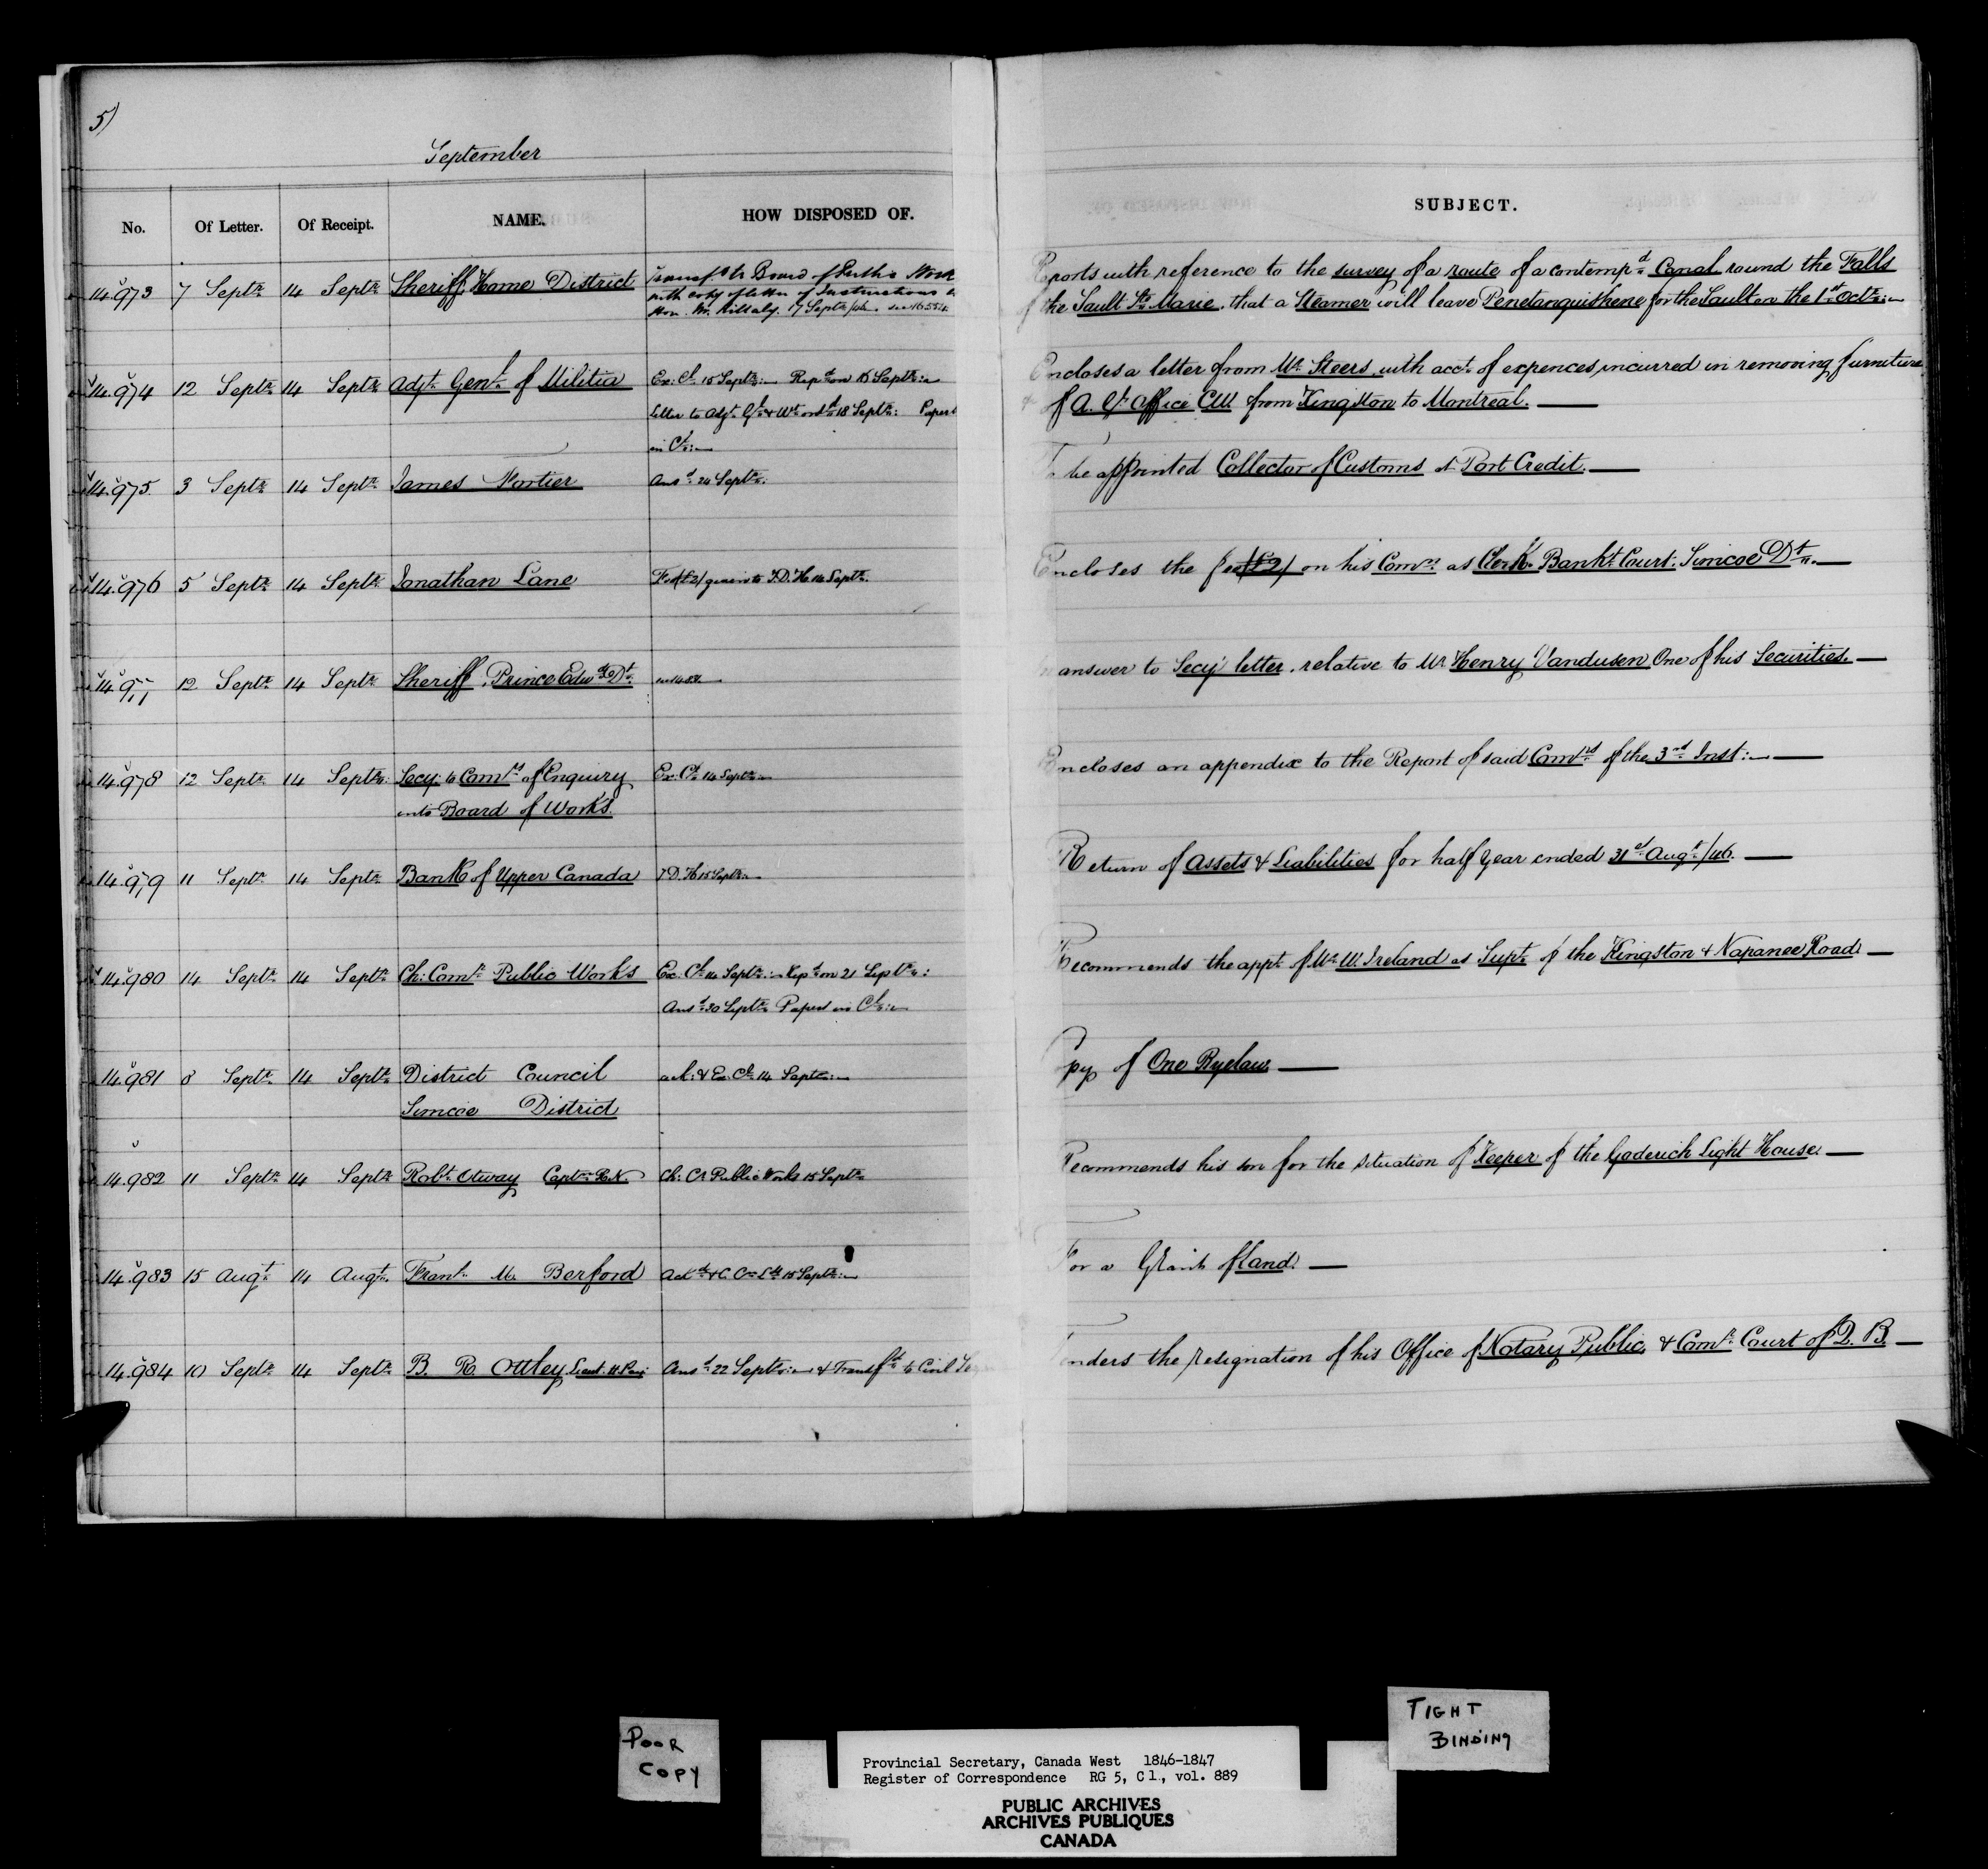 5)
September
No. Of Letter. Of Receipt. NAME. HOW DISPOSED OF. SUBJECT.
14.973 7 Septr. 14 Septr. Sheriff, Home District Transfd to Board of Works
with copy of letter of Instructions to
Hon. Mr. Killaly. 17 Septr/46.
Reports with reference to the survey of a route of a contempd. Canal round the Falls
of the Sault Ste Marie, that a Steamer will leave Penetanguishene for the Sault on the 1st Octr:
14.974 12 Septr. 14 Septr. Adjt. Genl. of Militia Ex: Cl. 15 Septr: Repd. on
letter to Adjt. Gl. & Wt. ordd. 18 Septr: Papers
in Cl:
Encloses a letter from Mr. Steers, with acct. of expences incurred in removing furniture
of A. G. Office C.W. from Kingston to Montreal.
14.975 3 Septr. 14 Septr. James Ansd. 24 Septr. To be appointed Collector of Customs at Port Credit.
14.976 5 Septr. 14 Septr. Jonathan Lane Fee (£2) given to T.D.H. 14 Septr. Encloses the fee (£2) on his Comn. as Clerk Bankt. Court: Simcoe Dt.
14.977 12 Septr. 14 Septr. Sheriff, Prince Edwd. Dt. In answer to Secy's letter, relative to Mr. Henry Vandusen One of his Securities.
14.978 12 Septr. 14 Septr. Secy. to Comrs. of Enquiry
into Board of Works.
Ex: Cl. 14 Septr: Encloses an appendix to the Report of said Comrs. of the 3rd. Inst:
14.979 11 Septr. 14 Septr. Bank of Upper Canada T.D.H. 15 Septr: Return of Assets & Liabilities for half Year ended 31st. Augt./46.
14.980 14 Septr. 14 Septr. Ch: Comr. Public Works Ex. Cl. 14 Septr: Repd. on 21 Septr:
Ansd. 30 Septr. Papers in Cl:
Recommends the appt. of Mr. W. Ireland as Supt. of the Kingston & Napanee Road.
14.981 8 Septr. 14 Septr. District Council
Simcoe District
ack: & Ex: Cl. 14 Septr: Copy of One Byelaw.
14.982 11 Septr. 14 Septr. Robt. Otway Captn. R.N. Ch: Cr. Public Works 15 Septr. Recommends his son for the situation of Keeper of the Goderich Light House.
14.983 15 Augt. 14 Augt. M. Berford Ackd. & C. Cr. Lds 15 Septr: For a Grant of Land.
14.984 10 Septr. 14 Septr. B. R. Ottley Ansd. 22 Septr: & Transfd. to Civil Tenders the resignation of his Office of Notary Public, & Comr. Court of Q. B.
POOR
COPY
TIGHT
BINDING
Provincial Secretary, Canada West 1846-1847
Register of Correspondence RG 5, C 1., vol. 889
PUBLIC ARCHIVES
ARCHIVES PUBLIQUES
CANADA